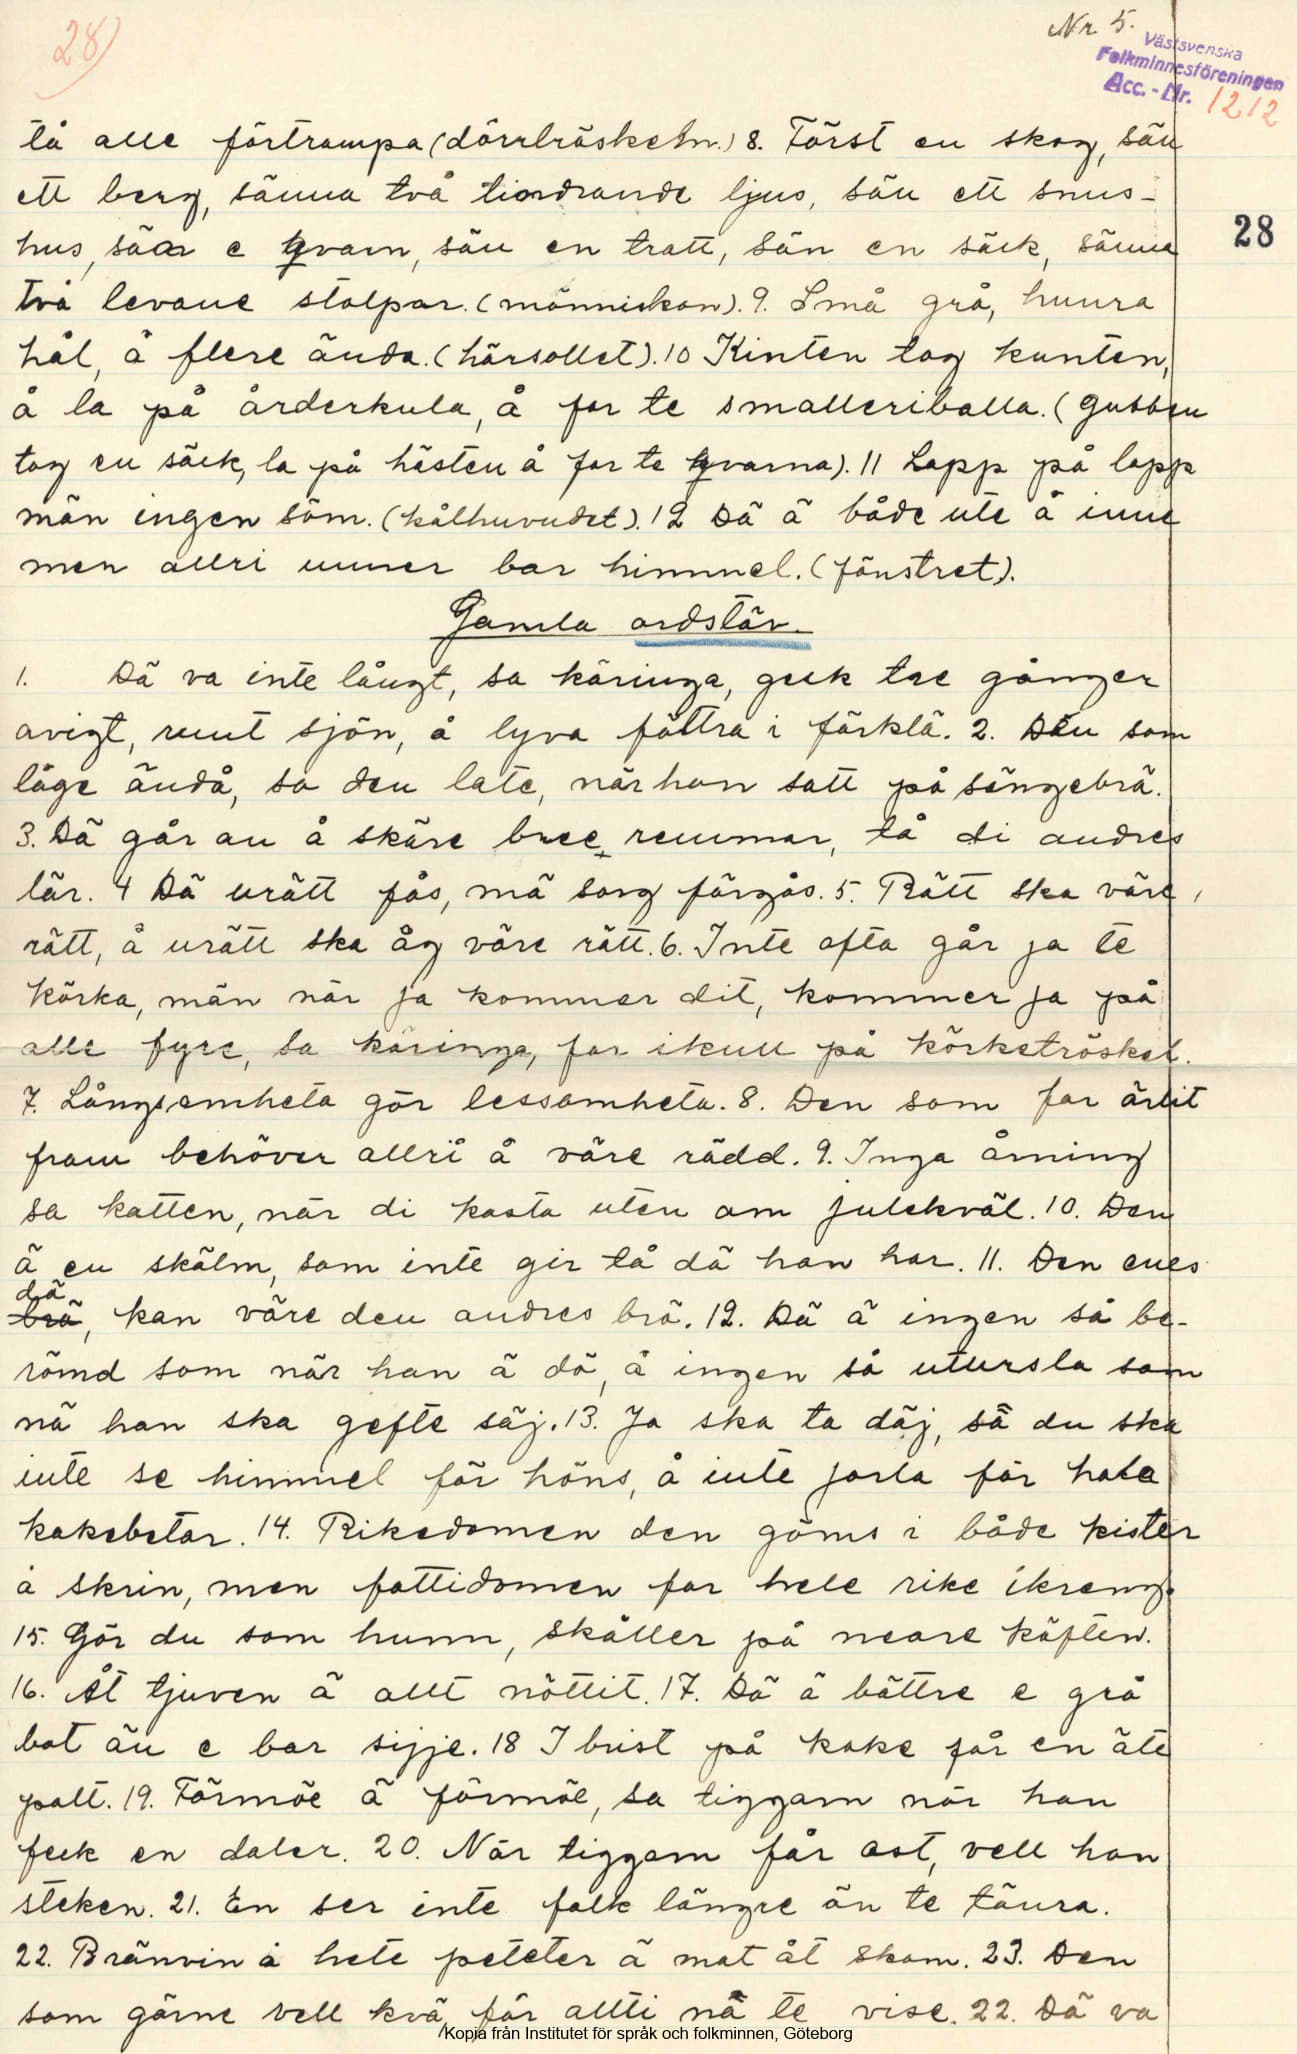 28)
Nr. 5.
Västsvenska
Folkminnesföreningen
Acc.-Nr. 1212
28
tå alle förtrampa (dörrtröskeln.) 8. Först en skog, sän
ett berg, sänna två tindrande ljus, sän ett snus-
hus, sän e qvarn, sän en tratt, sän en säck, sänna
två levane stolpar. (människan). 9. Små grå, hunra
hål, å flere ända. (hårsollet). 10 Kinten tog kunten,
å la på årderkula, å for te smalleriballa. (Gubben
tog en säck, la på hästen å for te qvarna). 11 Lapp på lapp
män ingen söm. (kålhuvudet). 12 Dä ä både ute å inne
men allri unner bar himmel. (fönstret).
Gamla ordstäv.
1. Dä va inte långt, sa käringa, gick tre gånger
avigt, runt sjön, å lyva föttra i förklä. 2. Den som
låge ändå, sa den late, när han satt på sängebrä.
3. Dä går an å skäre bree remmar, tå di andres
lär. 4 Dä urätt fås, mä sorg förgås. 5. Rätt ska väre,
rätt, å urätt ska åg väre rätt. 6. Inte ofta går ja te
körka, män när ja kommer dit, kommer ja på
alle fyre, sa käringa, for ikull på körketröskel.
7. Långsamheta gör lessamheta. 8. Den som far ärlit
fram behöver allri å väre rädd. 9. Inga åming
sa katten, när di kasta uten om julekväl. 10. Den
ä en skälm, som inte gir tå dä han har. 11. Den enes
dö
brö, kan väre den andres brö. 12. Dä ä ingen så be-
römd som när han ä dö, å ingen så utursla som
nä han ska gefte säj. 13. Ja ska ta däj, så du ska
inte se himmel för höns, å inte jorla för hala
kakebetar. 14. Rikedomen den göms i både kister
å skrin, men fattidomen far hele rike ikreng.
15. Gör du som hunn, skäller på neare käften.
16. Åt tjuven ä allt nöttit. 17. Dä ä bättre e grå
bot än e bar sijje. 18 I brist på kake får en äte
palt. 19. Förmöe ä förmöe, sa tiggarn när han
feck en daler. 20. När tiggarn får ost, vell han
steken. 21. En ser inte folk längre än te tänra.
22. Bränvin å hete peteter ä mat åt skam. 23. Den
som gärne vell kvä, får allti nå te vise. 22. Dä va
Kopia från Institutet för språk och folkminnen, Göteborg